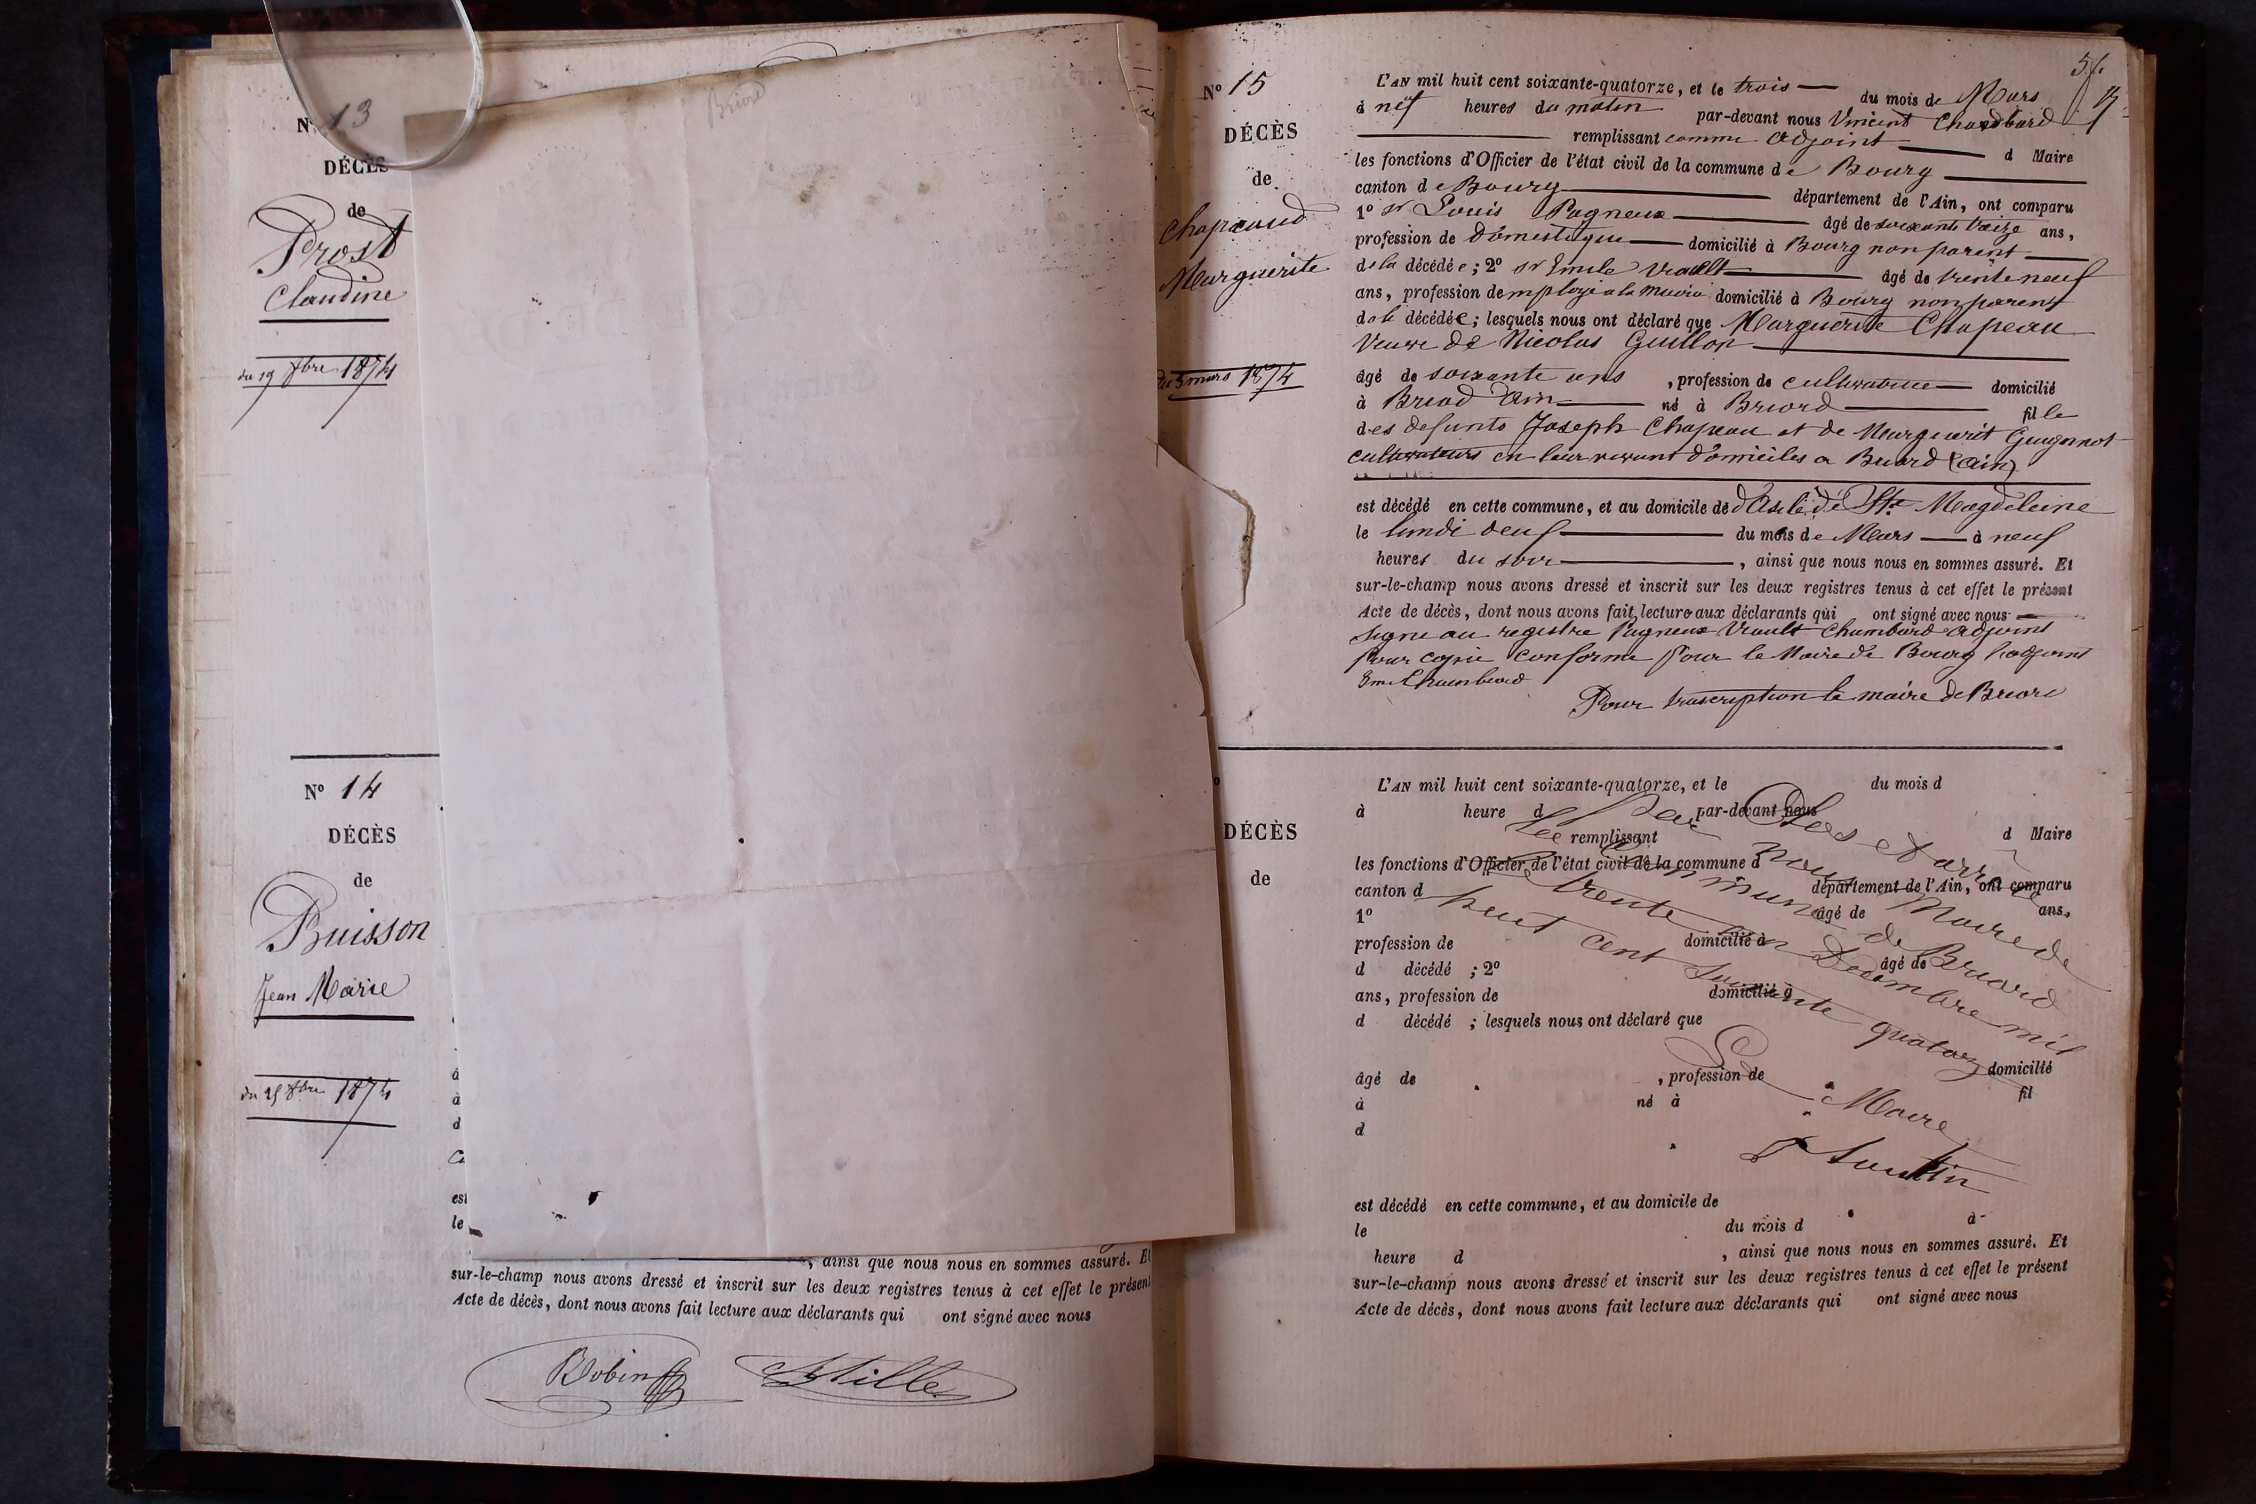 N° 13
DÉCÈS
de
Prost
Claudine
du 19 9bre 1874
N° 14
DÉCÈS
de
Buisson
Jean Marie
du 25 Xbre 1874
Briord
à
à
d
est
le
, ainsi que nous nous en sommes assuré. Et
sur-le-champ nous avons dressé et inscrit sur les deux registres tenus à cet effet le présent
Acte de décès, dont nous avons fait lecture aux déclarants qui ont signé avec nous
Bobin
N° 15
DÉCÈS
de
Chapeaud
Marguerite
du 3 mars 1874
L'AN mil huit cent soixante-quatorze, et le trois du mois de Mars
à nef heures du matin par-devant nous Vincent Chambard
remplissant comme adjoint d Maire
les fonctions d'Officier de l'état civil de la commune de Bourg
canton de Bourg département de l'Ain, ont comparu
1° sr Louis Pagneux âgé de soixante treize ans,
profession de Domestique domicilié à Bourg non parent
de la décédée; 2° sr Emile Vrault âgé de trente neuf
ans, profession demploye a la Mairie domicilié à Bourg non parent
de la décédée; lesquels nous ont déclaré que Marguerite Chapeau
Veuve de Nicolas Guillon
âgé de soixante ans, profession de cultivatrice domicilié
à Briod Ain né à Briord fille
des defunts Joseph Chapeau et de Marguerit
cultivateurs en leur vivant domicilés a Briord (Ain)
est décédé en cette commune, et au domicile de d'Asile de Ste Magdeleine
le lundi deux du mois de Mars à neuf
heures du soir, ainsi que nous nous en sommes assuré. Et
sur-le-champ nous avons dressé et inscrit sur les deux registres tenus à cet effet le présent
Acte de décès, dont nous avons fait lecture aux déclarants qui ont signé avec nous
Signe au registre Pagneux Vrault Chambard adjoint
pour copie conforme pour le Maire de Bourg l'adjoint
Chambard
Pour trascription le maire de Briord
DÉCÈS
de
L'AN mil huit cent soixante-quatorze, et le du mois d
à heure d par-devant nous
remplissant d Maire
les fonctions d'Officier de l'état civil de la commune d
canton d département de l'Ain, ont comparu
1° âgé de ans,
profession de domicilié à
d décédé ; 2° âgé de
ans, profession de domicilié à
d décédé ; lesquels nous ont déclaré que
âgé de , profession de domicilié
à né à fil
d
Clos et arrêté
Par nous Maire de
la Commune de Briord
le trente un Décembre mil
huit cent soixante quatorze
Le Maire
est décédé en cette commune, et au domicile de
le du mois d à
heure d , ainsi que nous nous en sommes assuré. Et
sur-le-champ nous avons dressé et inscrit sur les deux registres tenus à cet effet le présent
Acte de décès, dont nous avons fait lecture aux déclarants qui ont signé avec nous